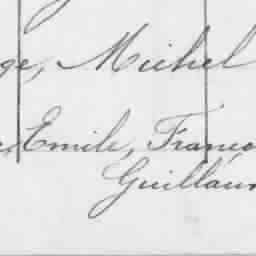 ge, Michel
e, Emile, Franço
Guillaum